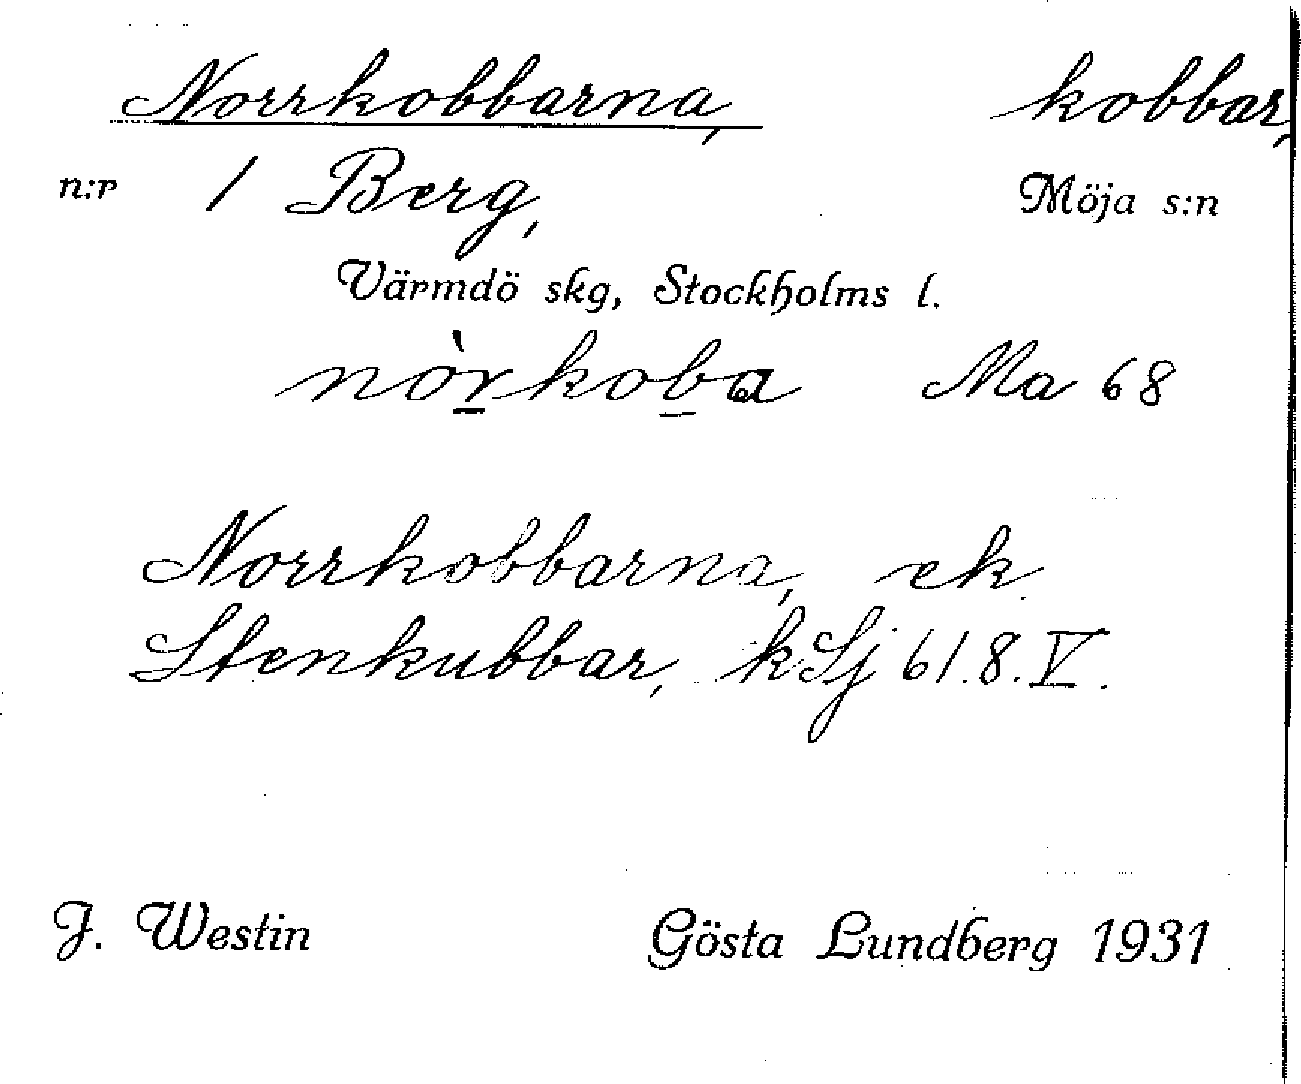 Norrkobbarna, kobbar,
n:r 1 Berg, Möja s:n
Värmdö skg, Stockholms l.
nòr̲kob̲a Ma 68
Norrkobbarna, ek.
Stenkubbar, kSj 61.8.V.
J. Westin Gösta Lundberg 1931